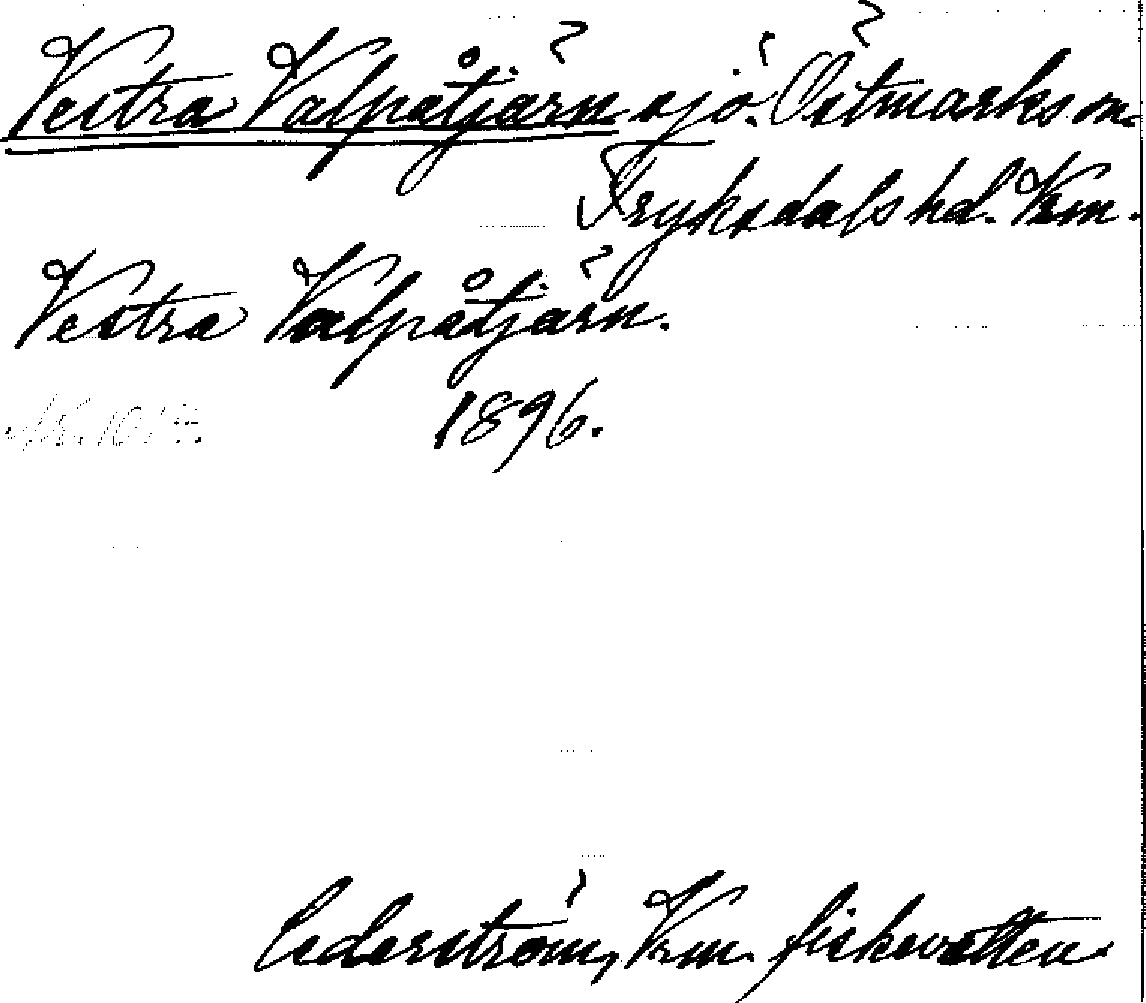 Vestra Valpåtjärn sjö. Östmarks sn.
Fryksdals hd. Vrm.
Vestra Valpåtjärn.
1896.
Cederström, Vrm. fiskevatten